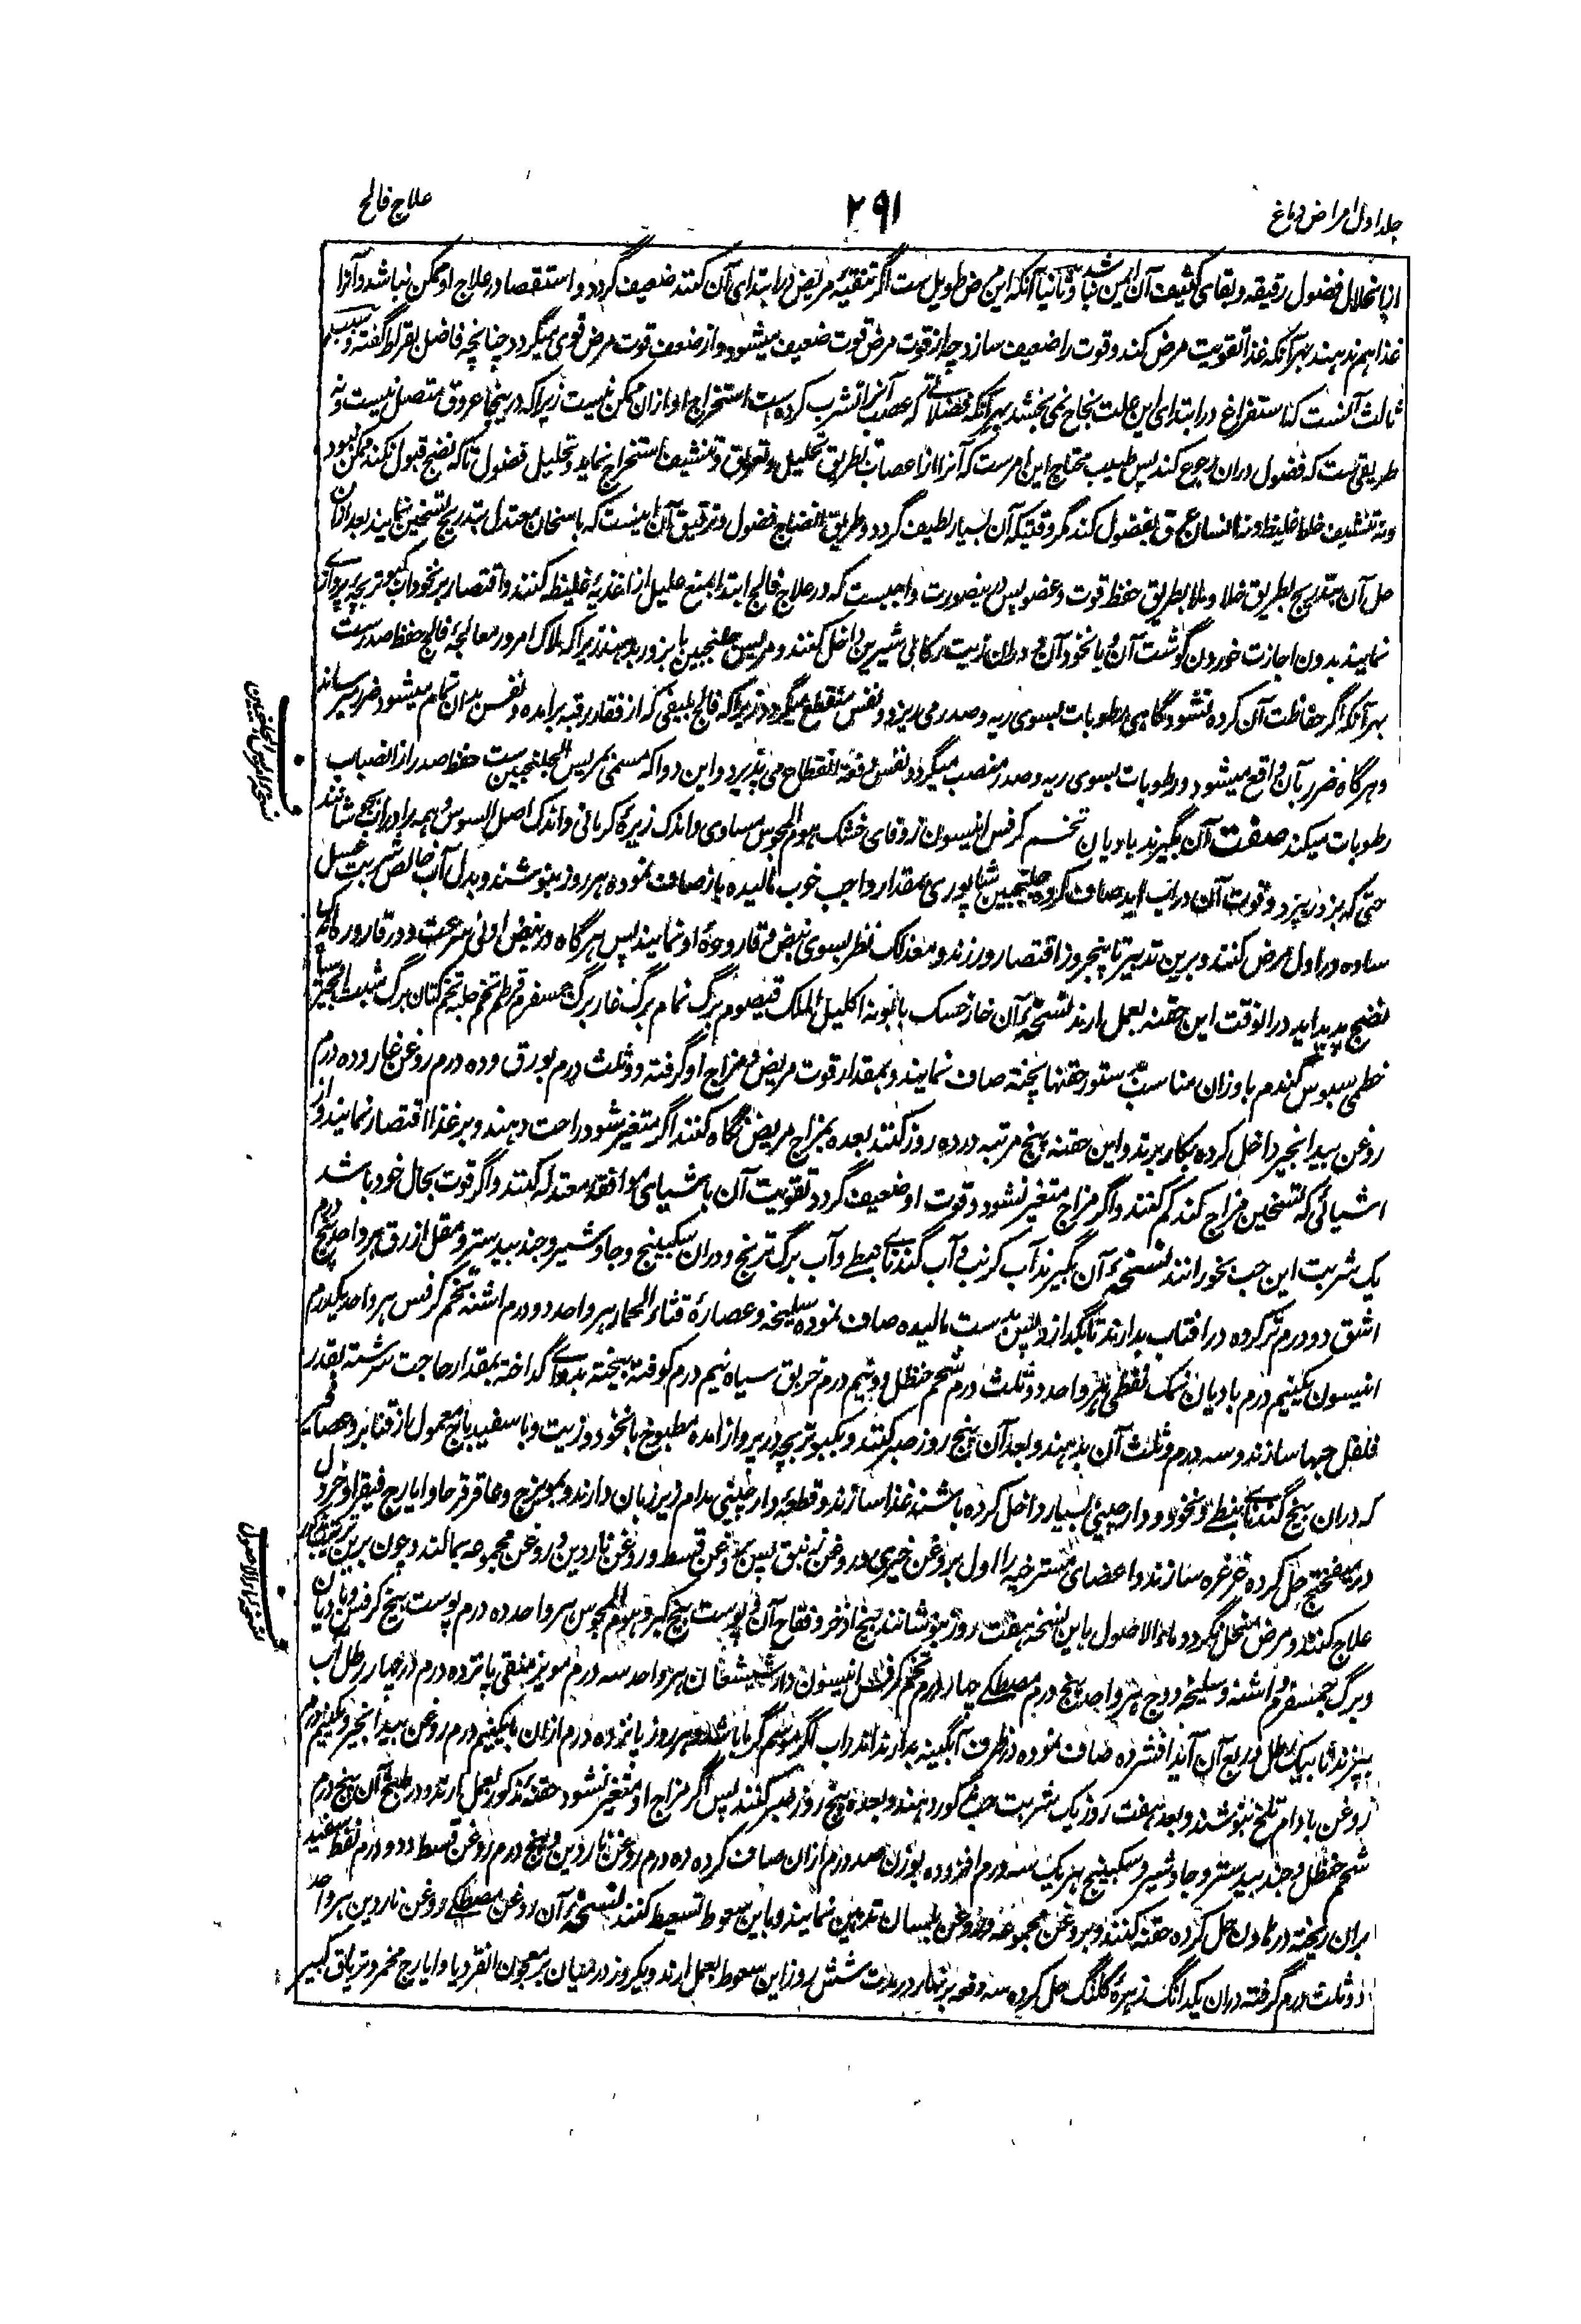 جلد اول امراض دماغ
۲۹۱
علاج فالج
از انحلال فضول رقیقه و بقای کثیف آن ایمن نباشد و ثانیا آنکه این مرض طویل ست اگر تنقیهٔ مریض در ابتدای آن کنند ضعیف گردد و استقصا در علاج او ممکن نباشد و آنرا
غذا هم ندهند بهر آنکه غذا تقویت مرض کند و قوت را ضعیف سازد چه از قوت مرض قوت ضعیف میشود و از ضعف قوت مرض قوی میگردد چنانچه فاضل بقراط گفته و سبب
ثالث آنست که استفراغ در ابتدای این علت نجاح نمی بخشد بهر آنکه فضلاتی که عصب آنرا تشرب کرده است استخراج او ازان ممکن نیست زیراکه درینجا عروق متصل نیست و نه
طریقی ست که فضول دران رجوع کند پس طبیب محتاج این امرست که آنرا از اعصاب بطریق تحلیل و تعریق و تنشیف استخراج نماید و تحلیل فضول تا که نضج قبول نکند ممکن نبود
و نه تنشیف خلط غلیظ و نه انسان عرق بفضول کند مگر وقتیکه آن بسیار لطیف گردد و طریق انضاج فضول و ترقیق آن اینست که باسخان معتدل بتدریج تسخین نمایند بعد ازان
حل آن بتدریج بطریق خلا و ملا بطریق حفظ قوت و عضو پس درینصورت واجبست که در علاج فالج ابتدا بمنع علیل از اغذیهٔ غلیظه کنند و اقتصار بر نخوداب کبوتر بچهٔ پروازی
نمایند بدون اجازت خوردن گوشت آن و یا نخود آن و دران زیت رکابی شیرین داخل کنند و مریس جلنجبین با بزور بدهند زیراکه ملاک امر در معالجهٔ فالج حفظ صدرست
بهر آنکه اگر حفاظت آن کرده نشود گاهی رطوبات بسوی ریه و صدر می ریزد و نفس منقطع میگردد زیراکه فالج طبقی که از فقار رقبه برامده و نفس بدان تمام میشود ضرر میرساند
و هرگاه ضرر بآن واقع میشود و رطوبات بسوی ریه و صدر منصب میگردد و نفس دفعة انقطاع می پذیرد و این دوا که مسمی بمریس الجلنجبین ست حفظ صدر از انصباب
رطوبات میکند صفت آن بگیرند بادیان تخم کرفس انیسون زوفای خشک هوم المجوس مساوی و اندک زیرهٔ کرمانی و اندک اصل السوس و همه را در آب بجوشانند
حتی که بزور بپزد و قوت آن در آب آید صاف کرده جلنجبین شاپوری بمقدار واجب خوب مالیده باز صاف نموده هر روز بنوشند و بدل آب خالص شربت عسل
ساده در اول مرض کنند و برین تدبیر تا پنجروز اقتصار ورزند و معذلک نظر بسوی نبض و قارورهٔ او نمایند پس هرگاه در نبض ادنی سرعت و در قاروره اندک
نضج پدید آید درانوقت این حقنه بعمل ارند نسخهٔ آن خارخسک بابونه اکلیل الملک قیصوم برگ نمام برگ غار برگ جمسفرم قرطم تخم حلبه تخم کتان برگ شبت انجیر سپستان
خطمی سبوس گندم باوزان مناسب بدستور حقنها پخته صاف نمایند و بمقدار قوت مریض و مزاج او گرفته دو ثلث درم بورق و ده درم روغن غار و ده درم
روغن بیدانجیر داخل کرده بکار برند و این حقنه پنج مرتبه در ده روز کنند بعده بمزاج مریض نگاه کنند اگر متغیر شود راحت دهند و بر غذا اقتصار نمایند و از
اشیائی که تسخین مزاج کند کم کنند و اگر مزاج متغیر نشود و قوت او ضعیف گردد تقویت آن باشیای موافقهٔ معتدله کنند و اگر قوت بحال خود باشد
یک شربت این حب بخورانند نسخهٔ آن بگیرند آب کرنب و آب گندنای نبطی و آب برگ ترنج و دران سکبینج و جاوشیر و جندبیدستر و مقل ازرق هر واحد پنج درم
اشق دو درم تر کرده در افتاب بدارند تا بگدازد پس بدست مالیده صاف نموده سلیخه و عصارهٔ قثاء الحمار هر واحد دو درم اشنه تخم کرفس هر واحد یکدرم
انیسون یکنیم درم بادیان نمک نفطی هر واحد دو ثلث درم شحم حنظل دو نیم درم خربق سیاه نیم درم کوفته بیخته بدوای گداخته بمقدار حاجت سرشته بقدر
فلفل حبها سازند و سه درم و ثلث آن بدهند و بعد آن پنج روز صبر کنند و بکبوتر بچهٔ در پرواز امده مطبوخ بانخود و زیت و با سفیدباج معمول از قنابر و عصافیر
که دران بیخ گندنای نبطی و نخود و دارچینی بسیار داخل کرده باشند غذا سازند و قطعهٔ دارچینی مدام زیر زبان دارند و بمویزج و عاقرقرحا و ایارج فیقرا و خردل
در میفختج حل کرده غرغره سازند و اعضای مسترخیه را اول بروغن خیری و روغن زنبق پس بروغن قسط و روغن ناردین و روغن مجموعه بمالند و چون برین ترکیب مذکور
علاج کنند و مرض منحل نگردد ماء الاصول باین نسخه هفت روز بنوشانند بیخ اذخر و فقاح آن و پوست بیخ کبر و هوم المجوس هر واحد ده درم پوست بیخ کرفس و بادیان
و برگ جمسفرم و اشنه و سلیخه و وج هر واحد پنج درم مصطکی چهار درم تخم کرفس انیسون دارشیشعان هر واحد سه درم مویز منقی پانزده درم در چهار رطل آب
بپزند تا بیک رطل و ربع آن آید افشرده صاف نموده در ظرف آبگینه بدارند اندر آب اگر موسم گرما باشد و هر روز پانزده درم ازان با یکنیم درم روغن بیدانجیر و یکنیم درم
روغن بادام تلخ بنوشند و بعد هفت روز یک شربت حب مذکور دهند و بعده پنج روز صبر کنند پس اگر مزاج او متغیر نشود حقنهٔ مذکور بعمل ارند و در طبیخ آن پنج درم
شحم حنظل و جندبیدستر و جاوشیر و سکبینج هر یک سه درم افزوده بوزن صد درم ازان صاف کرده ده درم روغن ناردین و پنج درم روغن قسط و دو درم نفط سفید
بران ریخته در هاون حل کرده حقنه کنند و بروغن مجموعه و روغن بلسان تدهین نمایند و باین سعوط تسعیط کنند نسخهٔ آن روغن مصطکی روغن ناردین هر واحد
دو ثلث درم گرفته دران یکدانگ زهرهٔ کلنگ حل کرده سه دفعه بر نهار در مدت شش روز این سعوط بعمل ارند و یکروز در میان بر معجون انقردیا و ایارج مخمر و تریاق کبیر
نسخه مریس الجلنجبین
نسخه ماء الاصول